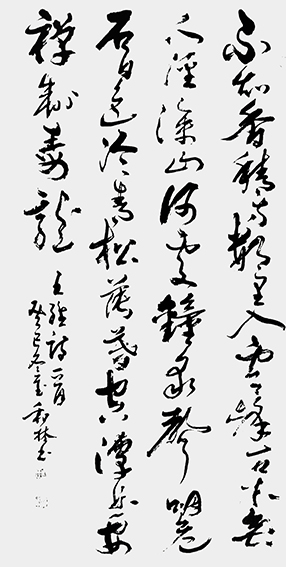 不知香積寺數里入雲峰古木無
人徑深山何處鐘泉聲咽危
石日色冷青松薄暮空潭曲安
禪制毒龍
王維詩一首
癸巳冬至林书